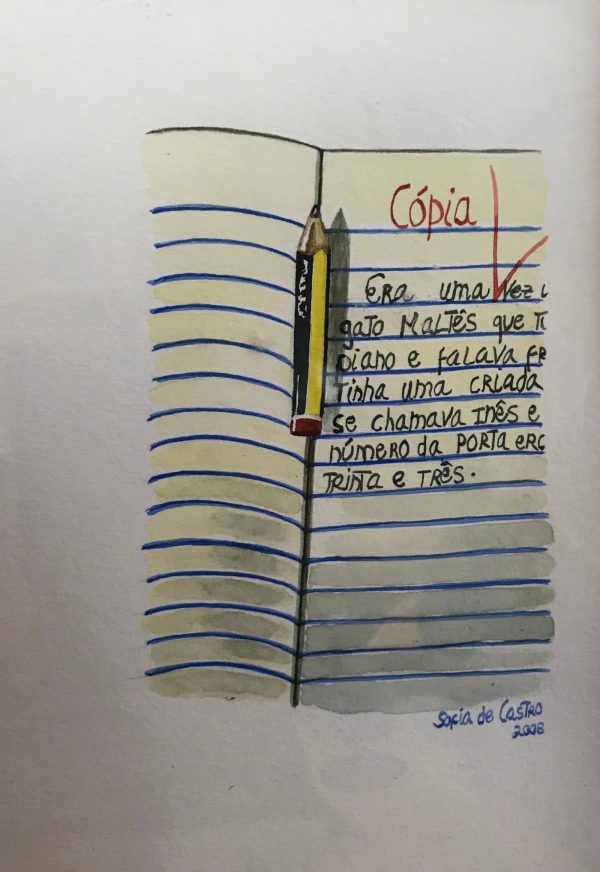 Cópia
Era uma vez
gato Maltês que
piano e falava fr
Tinha uma criada
se chamava Inês e
número da porta era
Trinta e Três.
Sofia de Castro
2008